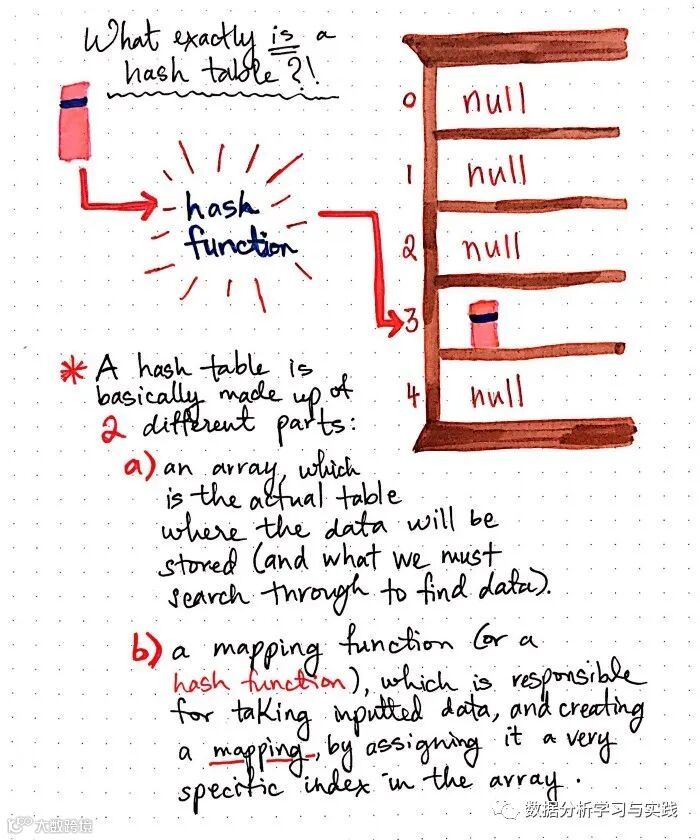 What exactly is a
hash table?!
hash
function
0 null
1 null
2 null
3
4 null
* A hash table is
basically made up of
2 different parts:
a) an array, which
is the actual table
where the data will be
stored (and what we must
search through to find data).
b) a mapping function (or a
hash function), which is responsible
for taking inputted data, and creating
a mapping, by assigning it a very
specific index in the array.
数据分析学习与实践
大数跨境